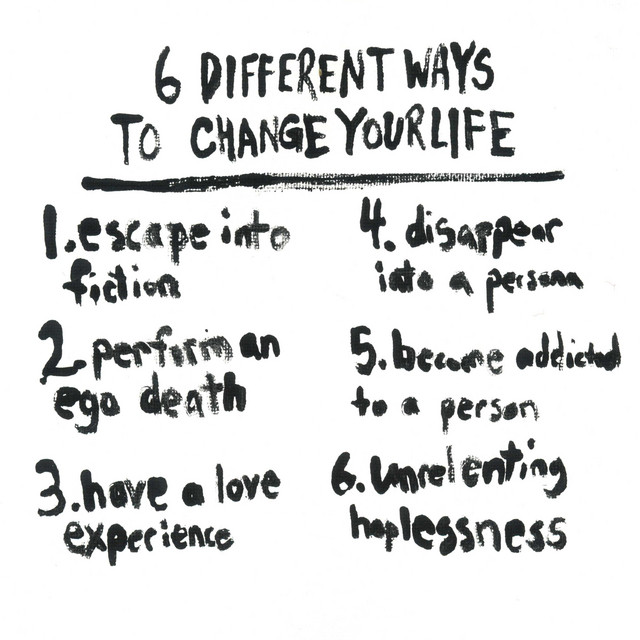 6 DIFFERENT WAYS
TO CHANGE YOUR LIFE
1. escape into
fiction
2. perform an
ego death
3. have a love
experience
4. disappear
into a persona
5. become addicted
to a person
6. unrelenting
haplessness